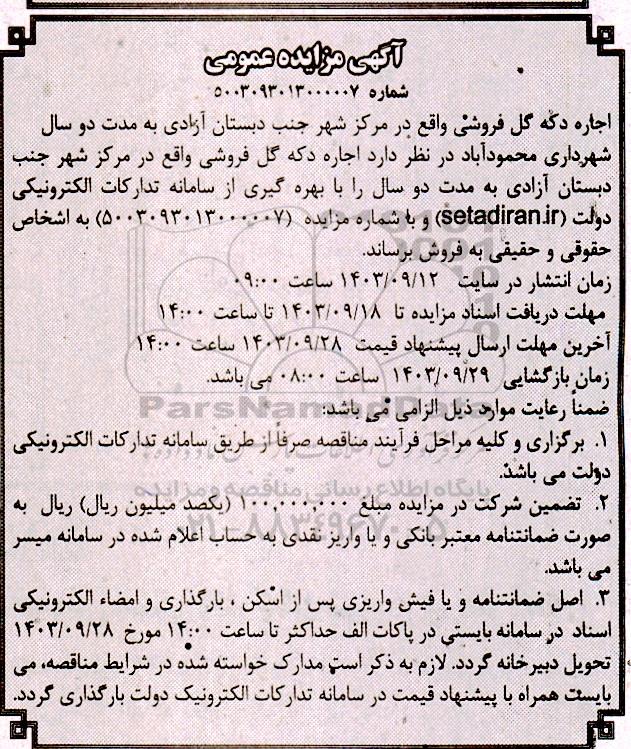 آگهی مزایده عمومی
شماره ۵۰۰۳۰۹۳۰۱۳۰۰۰۰۰۷
اجاره دکه گل فروشی واقع در مرکز شهر جنب دبستان آزادی به مدت دو سال
شهرداری محمودآباد در نظر دارد اجاره دکه گل فروشی واقع در مرکز شهر جنب
دبستان آزادی به مدت دو سال را با بهره گیری از سامانه تدارکات الکترونیکی
دولت (setadiran.ir) و با شماره مزایده (۵۰۰۳۰۹۳۰۱۳۰۰۰۰۰۷) به اشخاص
حقوقی و حقیقی به فروش برساند.
زمان انتشار در سایت ۱۴۰۳/۰۹/۱۲ ساعت ۰۹:۰۰
مهلت دریافت اسناد مزایده تا ۱۴۰۳/۰۹/۱۸ تا ساعت ۱۴:۰۰
آخرین مهلت ارسال پیشنهاد قیمت ۱۴۰۳/۰۹/۲۸ ساعت ۱۴:۰۰
زمان بازگشایی ۱۴۰۳/۰۹/۲۹ ساعت ۰۸:۰۰ می باشد.
ضمناً رعایت موارد ذیل الزامی می باشد:
ParsNamadData
۱. برگزاری و کلیه مراحل فرآیند مناقصه صرفاً از طریق سامانه تدارکات الکترونیکی
دولت می باشد.
پایگاه اطلاع رسانی مناقصه و مزایده
۲. تضمین شرکت در مزایده مبلغ ۱۰۰,۰۰۰,۰۰۰ (یکصد میلیون ریال) ریال به
صورت ضمانتنامه معتبر بانکی و یا واریز نقدی به حساب اعلام شده در سامانه میسر
۰۲۱-۸۸۳۴۹۶۷۰-۵
می باشد.
۳. اصل ضمانتنامه و یا فیش واریزی پس از اسکن ، بارگذاری و امضاء الکترونیکی
اسناد در سامانه بایستی در پاکات الف حداکثر تا ساعت ۱۴:۰۰ مورخ ۱۴۰۳/۰۹/۲۸
تحویل دبیرخانه گردد. لازم به ذکر است مدارک خواسته شده در شرایط مناقصه، می
بایست همراه با پیشنهاد قیمت در سامانه تدارکات الکترونیک دولت بارگذاری گردد.